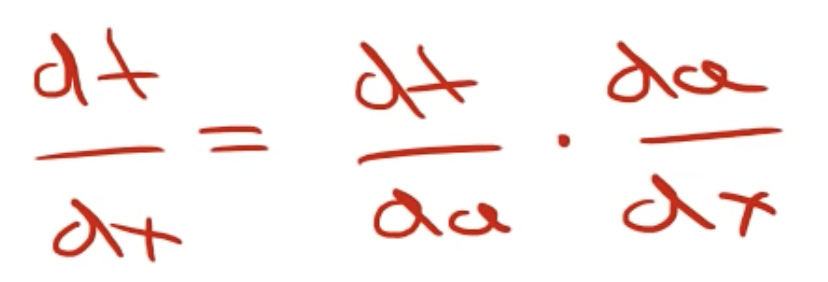 dt/dx = dt/da · da/dx